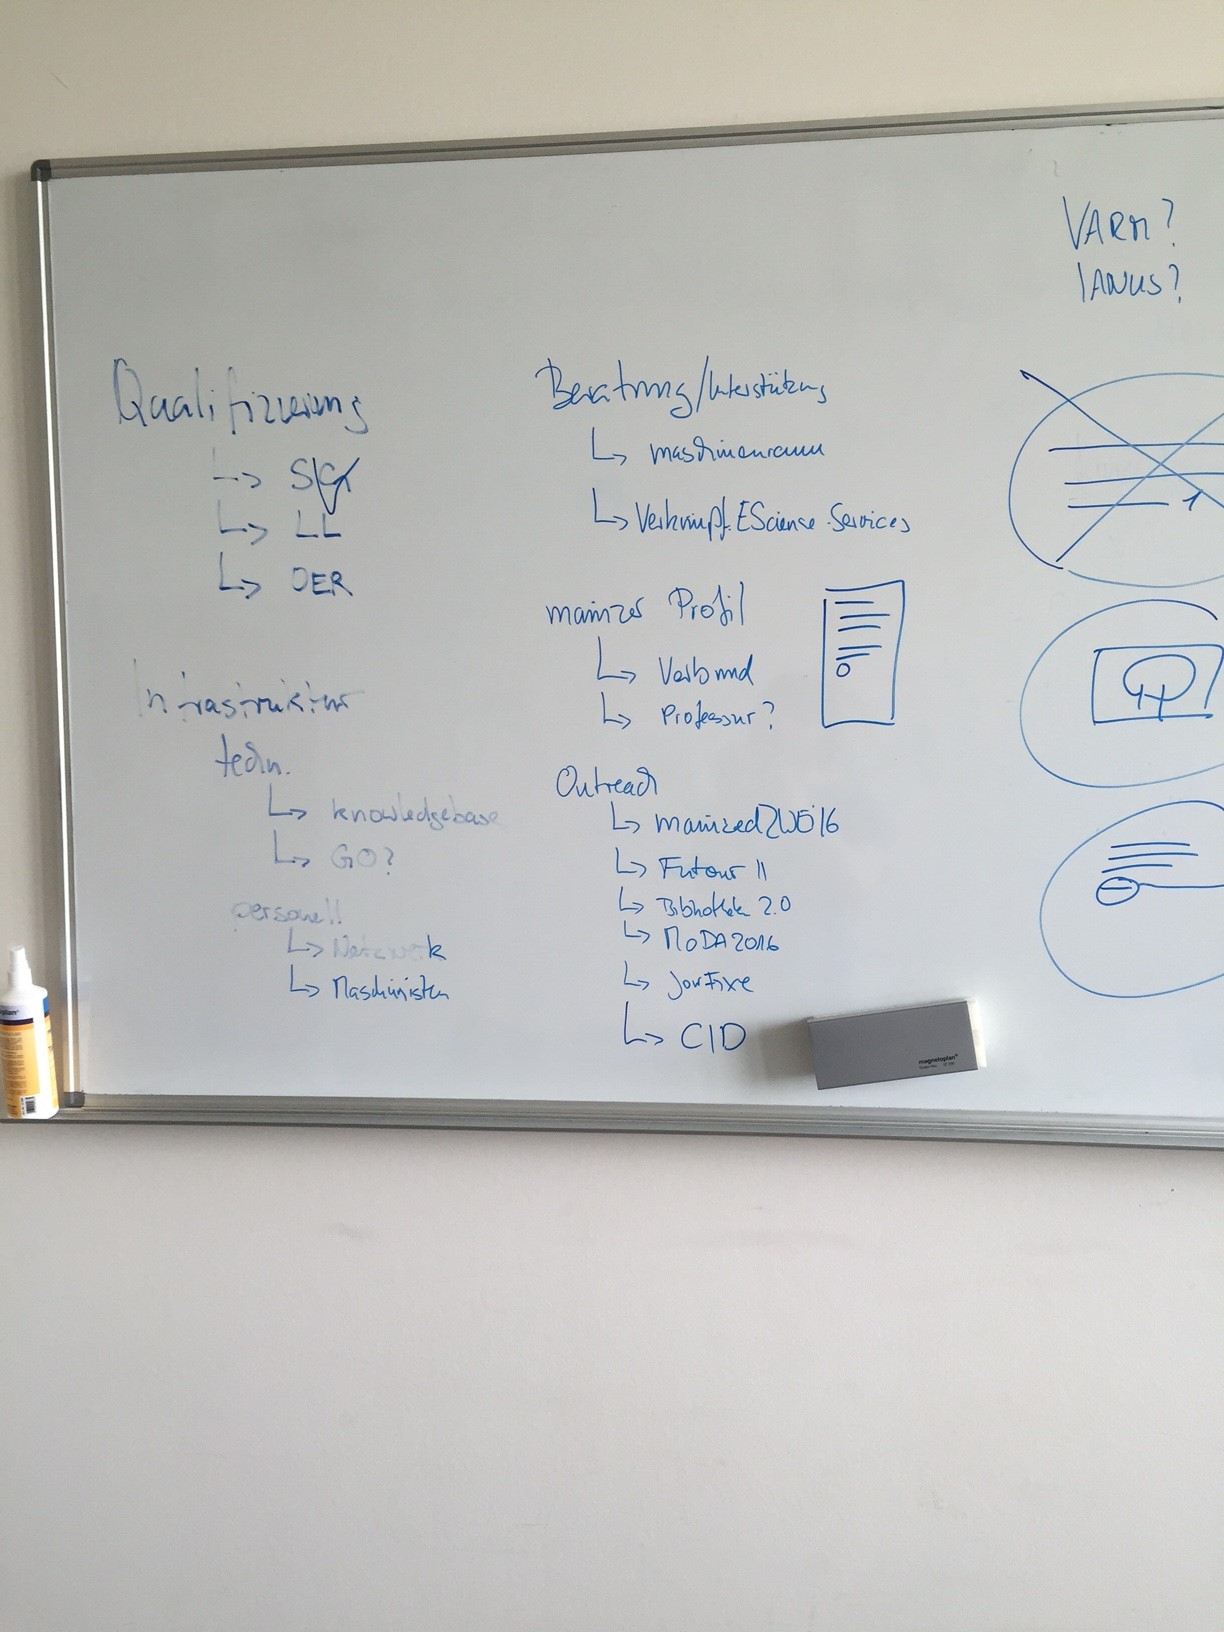 VARM?
IANUS?
Qualifizierung
↳ LL
↳ OER
Infrastruktur
techn.
↳ knowledgebase
↳ GO?
personell
↳ Netzwerk
↳ Maschinisten
Beratung/Unterstützung
↳ maschinenraum
↳ Verknüpf. EScience-Services
mainzer Profil
↳ Verbund
↳ Professur?
Outreach
↳ mainzedZWO16
↳ Futour II
↳ Bibliothek 2.0
↳ MoDA2016
↳ JourFixe
↳ CID
1
magnetoplan®